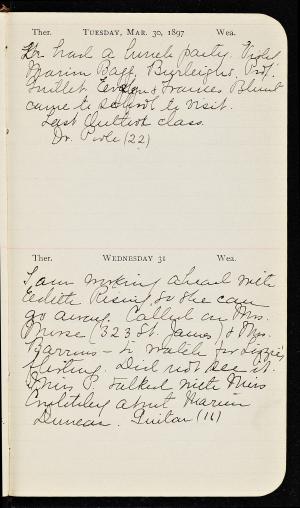 Ther. TUESDAY, MAR. 30, 1897 Wea.
had a lunch party. Violet
Marion Bagg, Burleighs, Prof.
& Frances Blunt
came to school to visit.
Last class.
Dr. Poole (22)
Ther. WEDNESDAY 31 Wea.
I am working ahead with
Edith Rising so she can
go away. Called on Mrs.
Morse (323 St. James) & Mrs.
Barrows - to watch for Lizzie's
flirting. Did not see it.
Miss P. talked with Miss
about Marion
Duncan. Guitar (11)